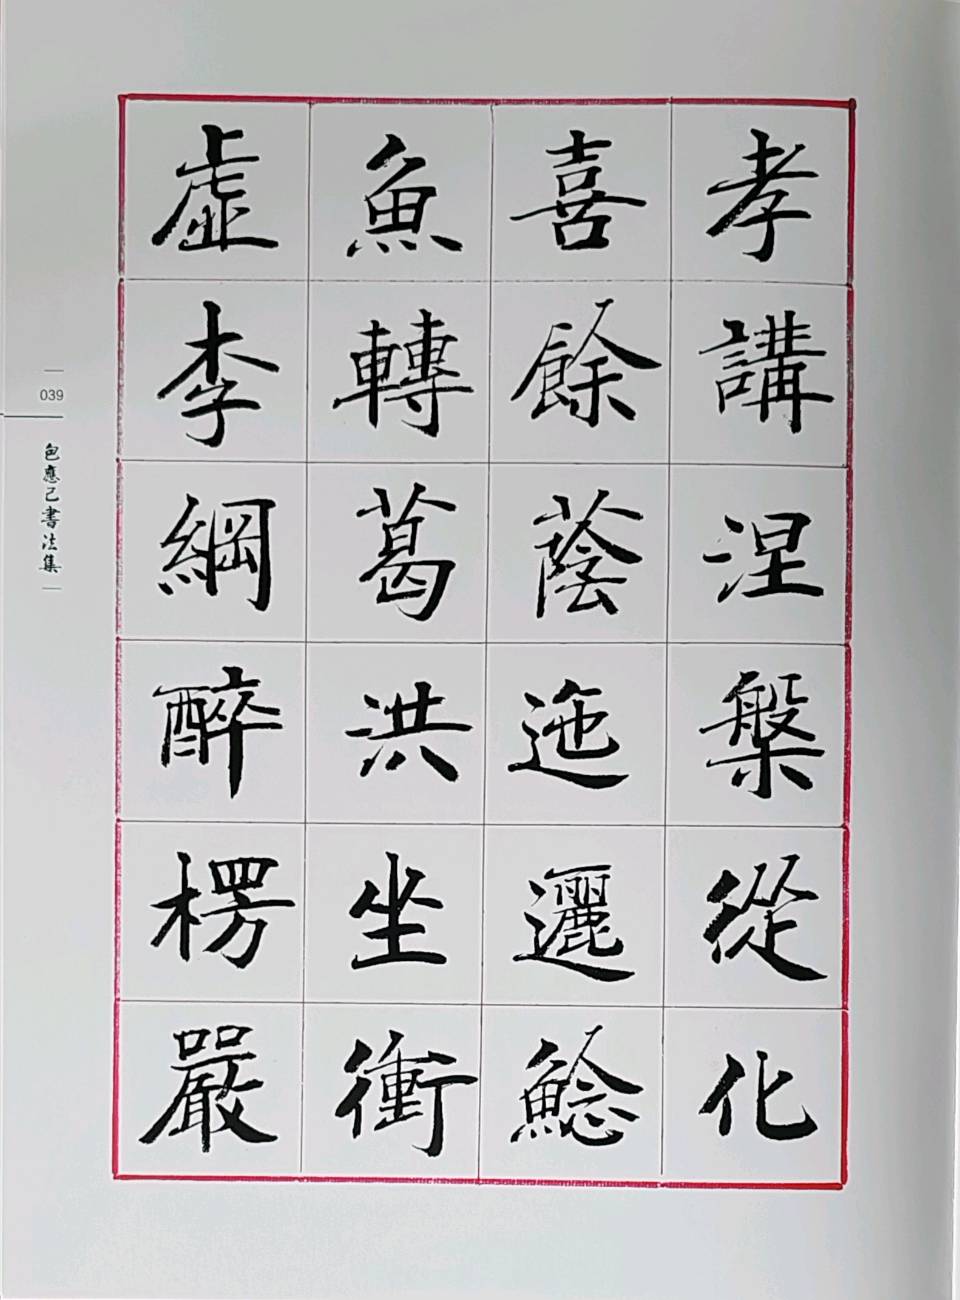 孝講涅槃從化
喜餘蔭迤邐鯰
魚轉葛洪坐衝
虛李綱醉楞嚴
039
包應己書法集